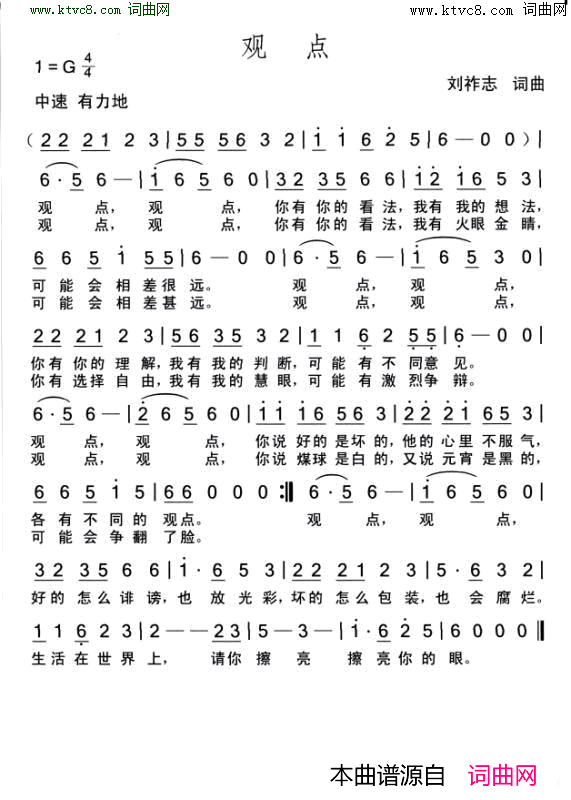 www.ktvc8.com 词曲网
www.ktvc8.com 词曲网
观 点
1=G 4/4
刘祚志 词曲
中速 有力地
(2 2 2 1 2 3 | 5 5 5 6 3 2 | 1 1 6 2 5 | 6 — 0 0) |
6 · 5 6 — | 1 6 5 6 0 | 3 2 3 5 6 6 | 1 2 1 6 5 3 |
观 点, 观 点, 你有你的看法,我有我的想法,
观 点, 观 点, 你有你的看法,我有火眼金睛,
6 6 5 1 5 5 | 6 — 0 0 | 6 · 5 6 — | 1 6 5 3 0 |
可能会相差很远。 观 点, 观 点,
可能会相差甚远。 观 点, 观 点,
2 2 2 1 2 3 | 5 6 3 5 3 2 | 1 1 6 2 5 5 | 6 — 0 0 |
你有你的理解,我有我的判断,可能有不同意见。
你有选择自由,我有我的慧眼,可能有激烈争辩。
6 · 5 6 — | 2 6 5 6 0 | 1 1 1 6 5 6 3 | 2 2 2 1 6 5 3 |
观 点, 观 点, 你说好的是坏的,他的心里不服气,
观 点, 观 点, 你说煤球是白的,又说元宵是黑的,
6 6 5 1 5 | 6 6 0 0 :‖ 6 · 5 6 — | 1 6 5 6 0 |
各有不同的观点。 观 点, 观 点,
可能会争翻了脸。
3 2 3 5 6 6 | 1 · 6 5 3 | 2 2 2 1 2 3 | 5 · 6 3 2 |
好的怎么诽谤,也放光彩,坏的怎么包装,也会腐烂。
1 1 6 2 3 | 2 — — 2 3 | 5 — 3 — | 1 · 6 2 5 | 6 — 0 0 ‖
生活在世界上, 请你擦亮 擦亮你的眼。
本曲谱源自 词曲网